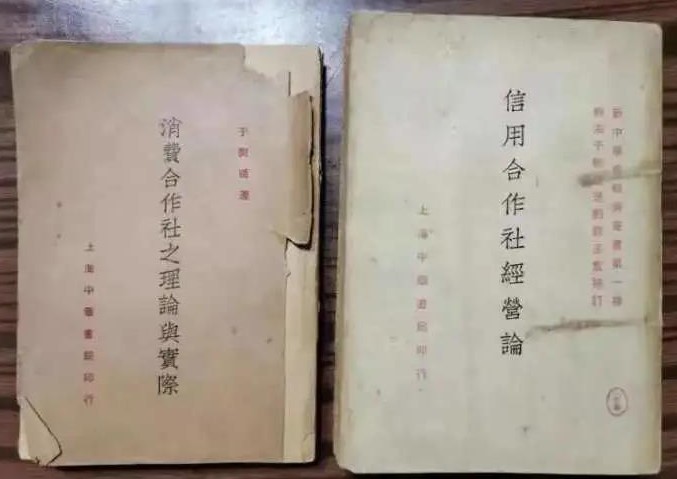 于樹德著
消費合作社之理論與實際
上海中華書局印行
叢書第一種
信用合作社經營論
上海中華書局印行